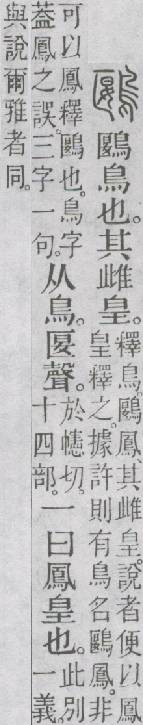 鶠 鶠鳥也。其雌皇。釋鳥。鶠鳳。其雌皇。說者便以鳳
皇釋之。據許則有鳥名鶠。非
可以鳳釋鶠也。鳥字
蓋鳳之誤。三字一句。从鳥。匽聲。於幰切。
十四部。一曰鳳皇也。此別
一義。
與說爾雅者同。